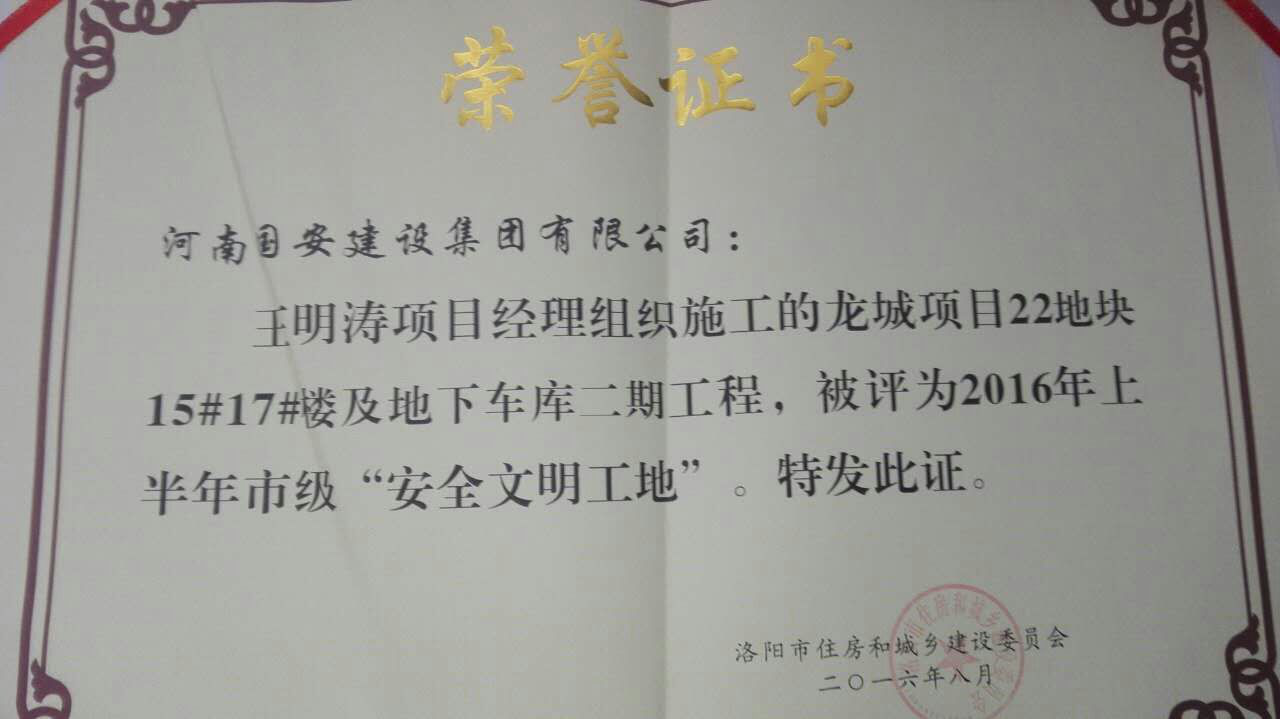 荣誉证书
河南国安建设集团有限公司：
王明涛项目经理组织施工的龙城项目22地块
15#17#楼及地下车库二期工程，被评为2016年上
半年市级“安全文明工地”。特发此证。
洛阳市住房和城乡建设委员会
二〇一六年八月